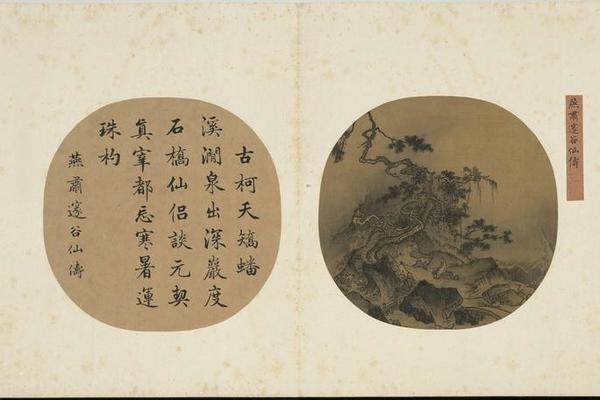 燕肅邃谷仙儔
古柯夭矯蟠
溪澗泉出深巖度
石橋仙侶談元契
眞宰都忘寒暑運
珠杓
燕肅邃谷仙儔